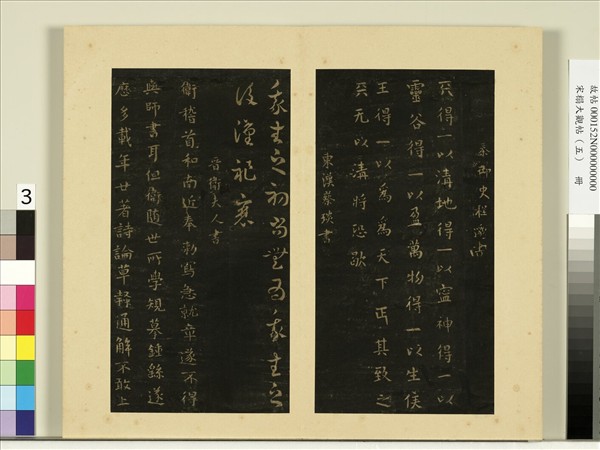 故帖 000152N000000000
宋搨大觀帖（五） 冊
秦御史程邈書
天得一以清地得一以寍神得一以
靈谷得一以盈萬物得一以生侯
王得一以為為天下正其致之
天无以清將恐歇
東漢蔡琰書
我生之初尚無為我生之
後漢祚衰
晉衛夫人書
衛稽首和南近奉勑寫急就章遂不得
與師書耳但衛隨世所學規摹鍾繇遂
歷多載年廿著詩論草隸通解不敢上
3